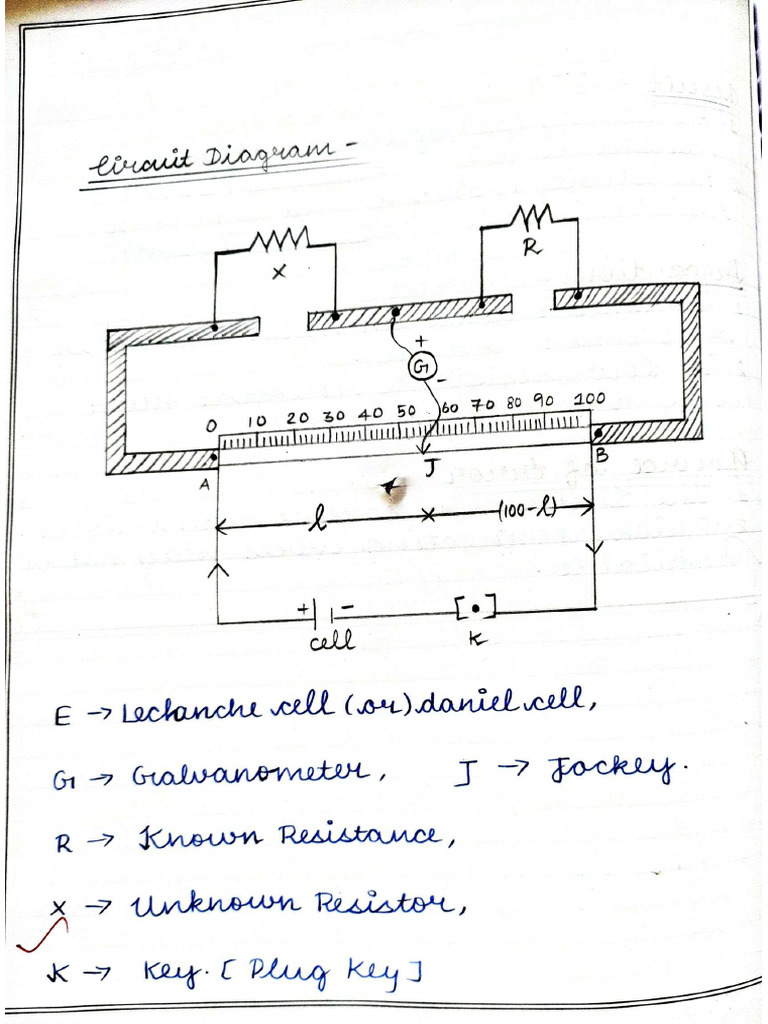 Circuit Diagram -
X
R
+
G
-
0 10 20 30 40 50 60 70 80 90 100
A
J
B
l
(100-l)
+ -
cell
K
E → Leclanche cell (or) daniel cell,
G → Galvanometer, J → Jockey.
R → Known Resistance,
X → Unknown Resistor,
K → Key. [Plug Key]